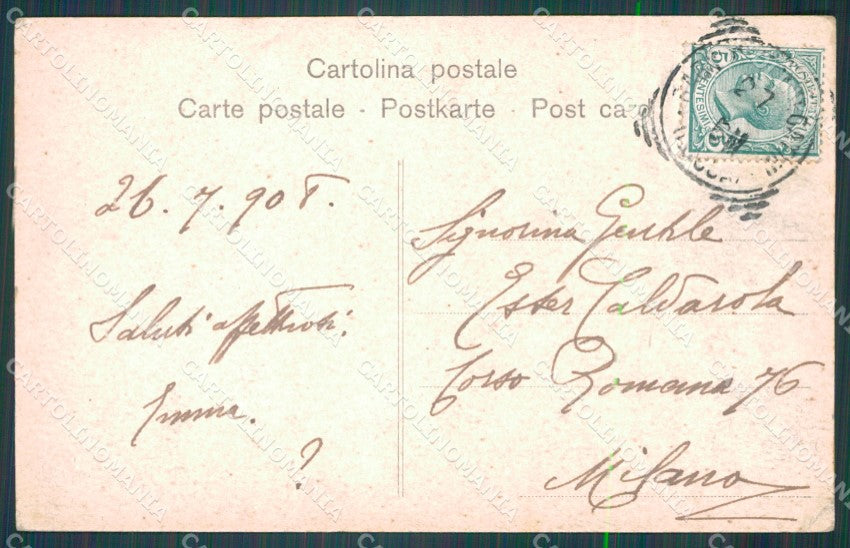 Cartolina postale
Carte postale - Postkarte - Post card
26. 7. 908.
Saluti affettuosi.
Emma.
?
Signorina Gentile
Ester Caldarola
Corso Romana 76
Milano
CARTOLINOMANIA